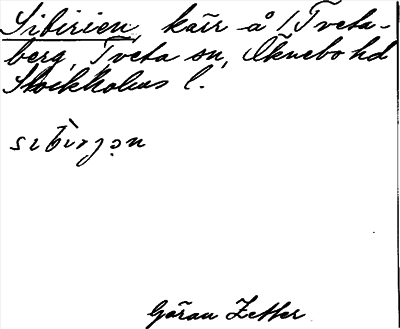 Sibirien, kärr å /Tveta-
berg, Tveta sn, Öknebo hd
Stockholms l.
Göran Zetter